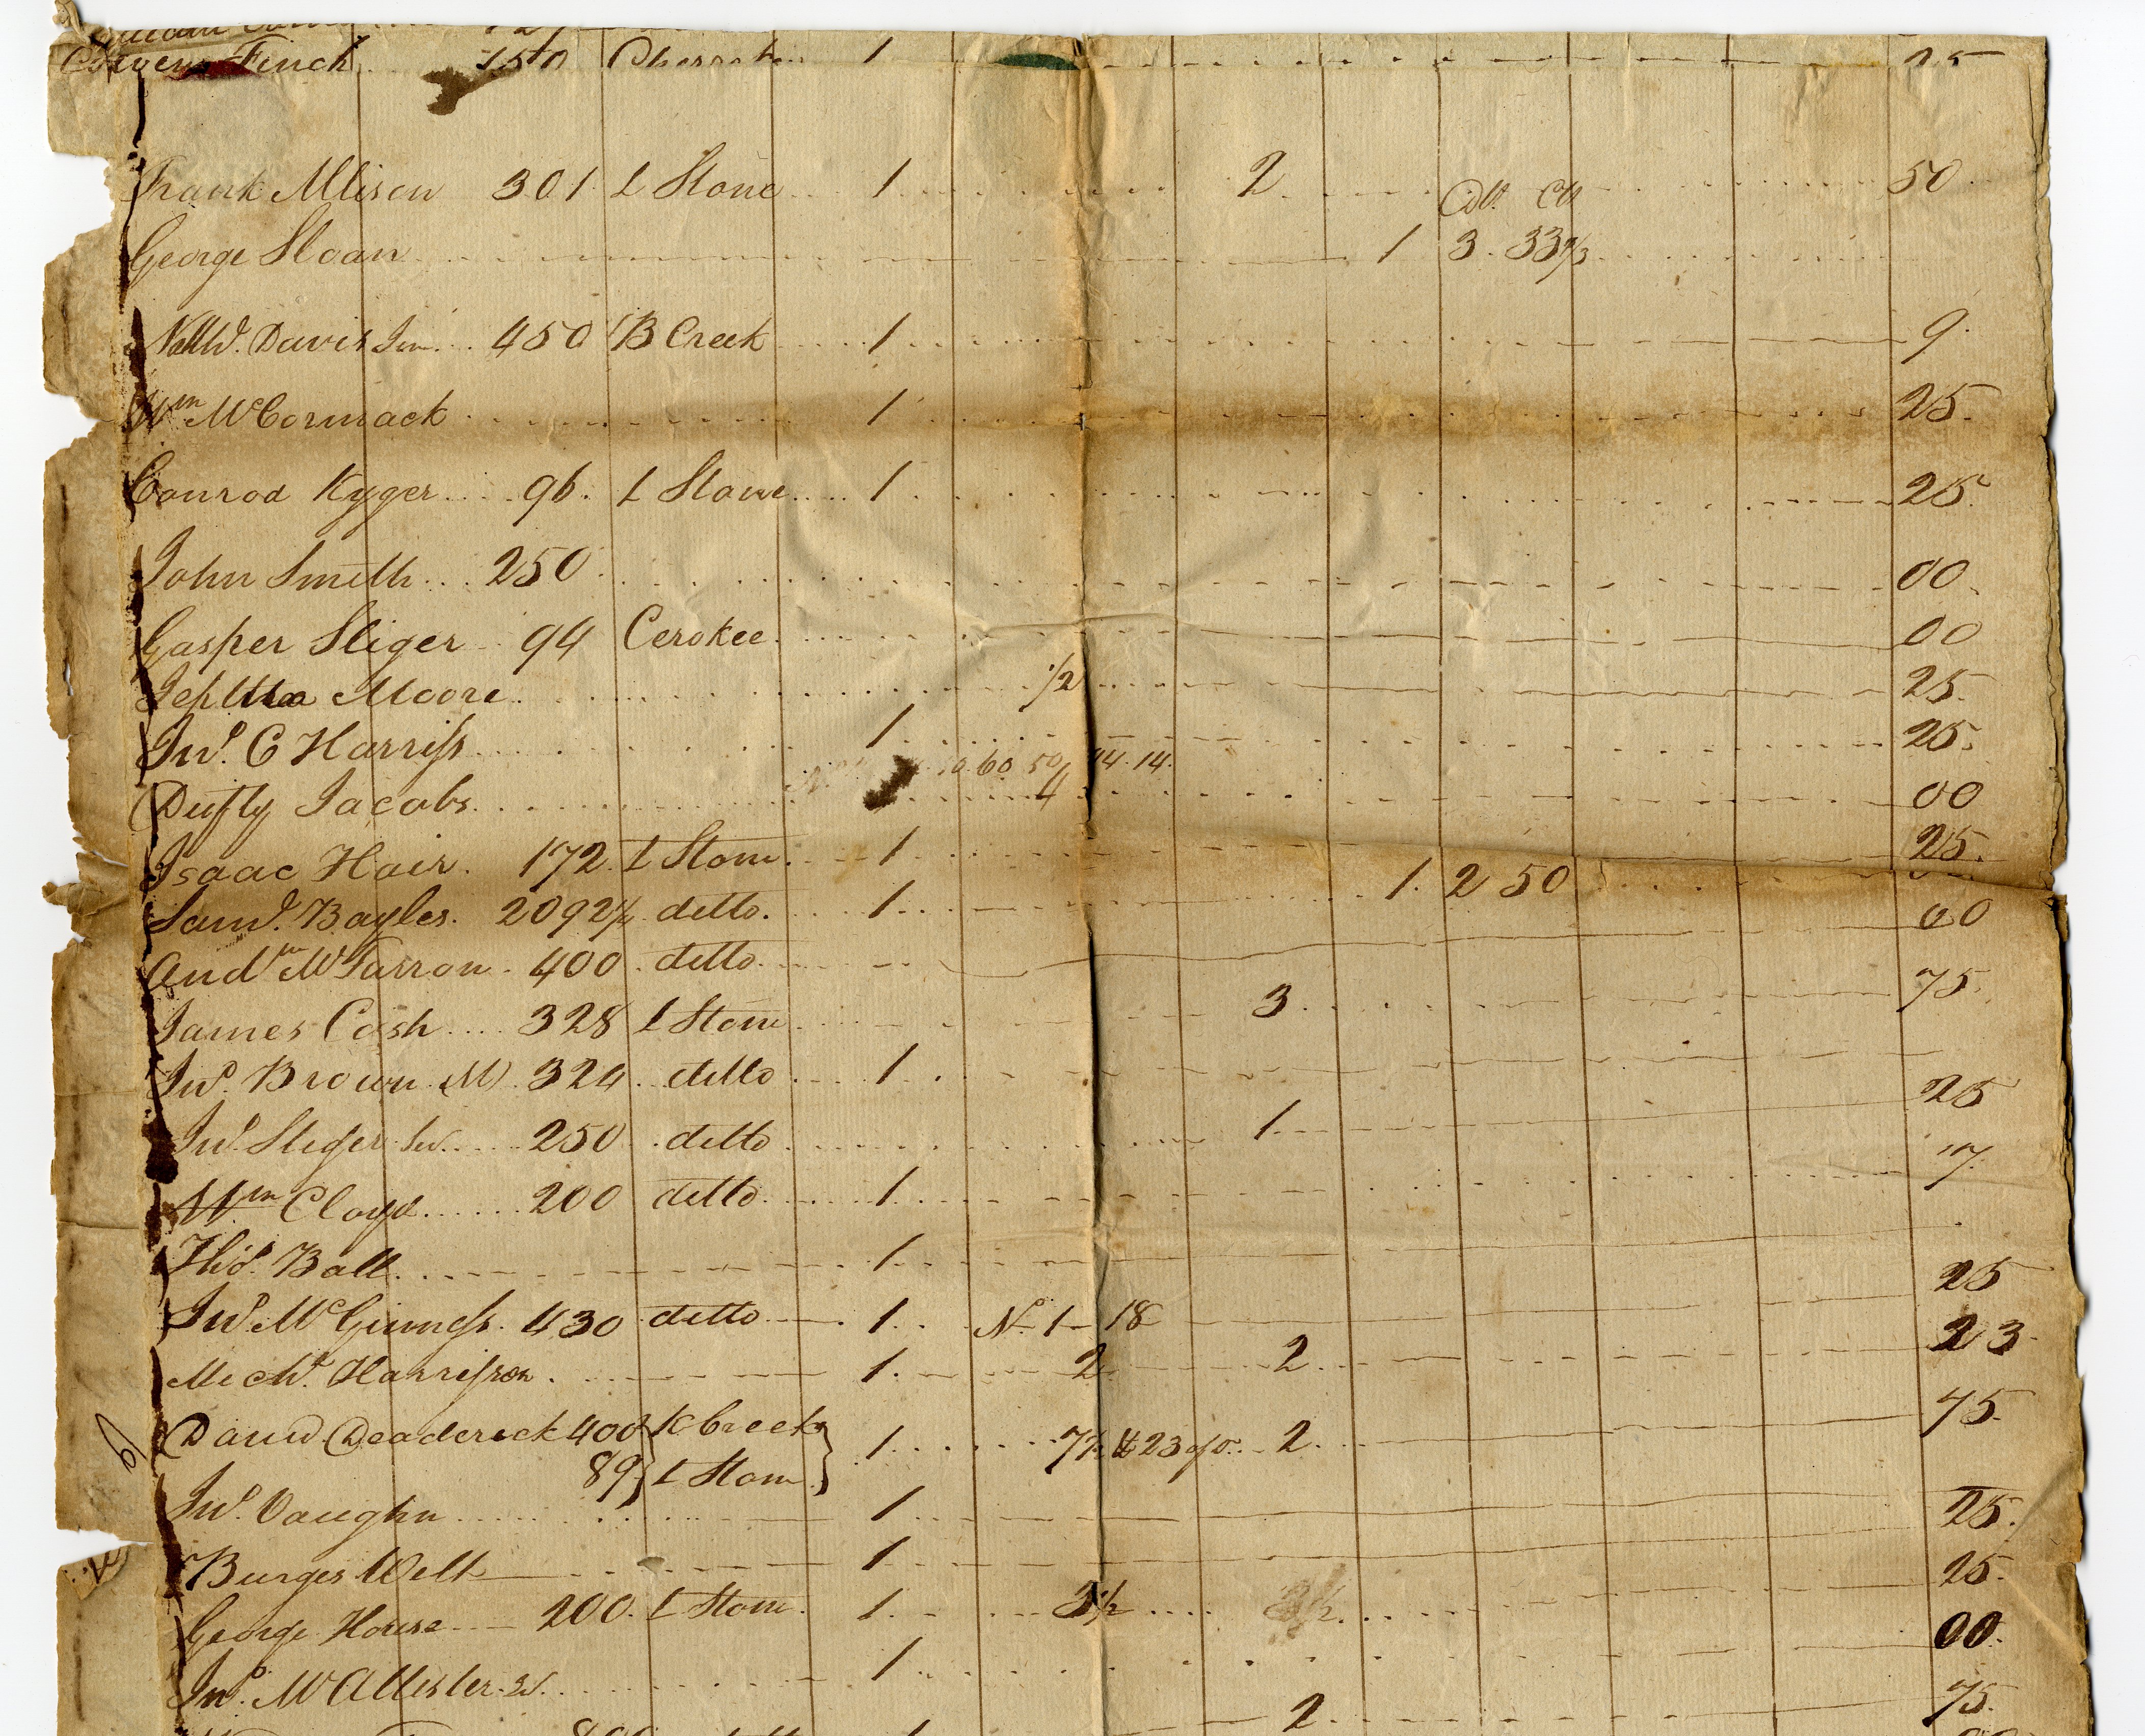 Finch 150 1 25
Frank Allison 301 L Stone 1 2 50
Dll Cts
George Sloan 1 3 33 1/3
Nathl. Davis Jun. 450 B Creek 1 9
Wm McCormack 1 25
Conrod Kyger 96 L Stone 1 25
John Smith 250 00
Gasper Sliger 94 Cerokee 00
Jeptha Moore 1/2 25
Jno. C Harriss 1 25
60 50 44 14
Dufty Jacobs 4 00
Isaac Hair 172 L Stone 1 25
Saml. Bayles 2092 1/2 ditto 1 1 2 50
Andw McFarron 400 ditto 00
James Cash 328 L Stone 3 75
Jno. Brown M 324 ditto 1
Jno. Sliger 250 ditto 1 25
Wm Cloyd 200 ditto 1 17
Thos. Ball 1
Jno. McGinness 430 ditto 1 No. 1 18 25
Mechl. Harrisson 1 2 2 23
David Deaderick 400 K Creek 1 7 1/2 23 2 75
89 L Stone
Jno. Vaughn 1 25
Burges Welt 1 25
George House 200 L Stone 1 3 1/2 00
Jno. McAllister 1
2 75